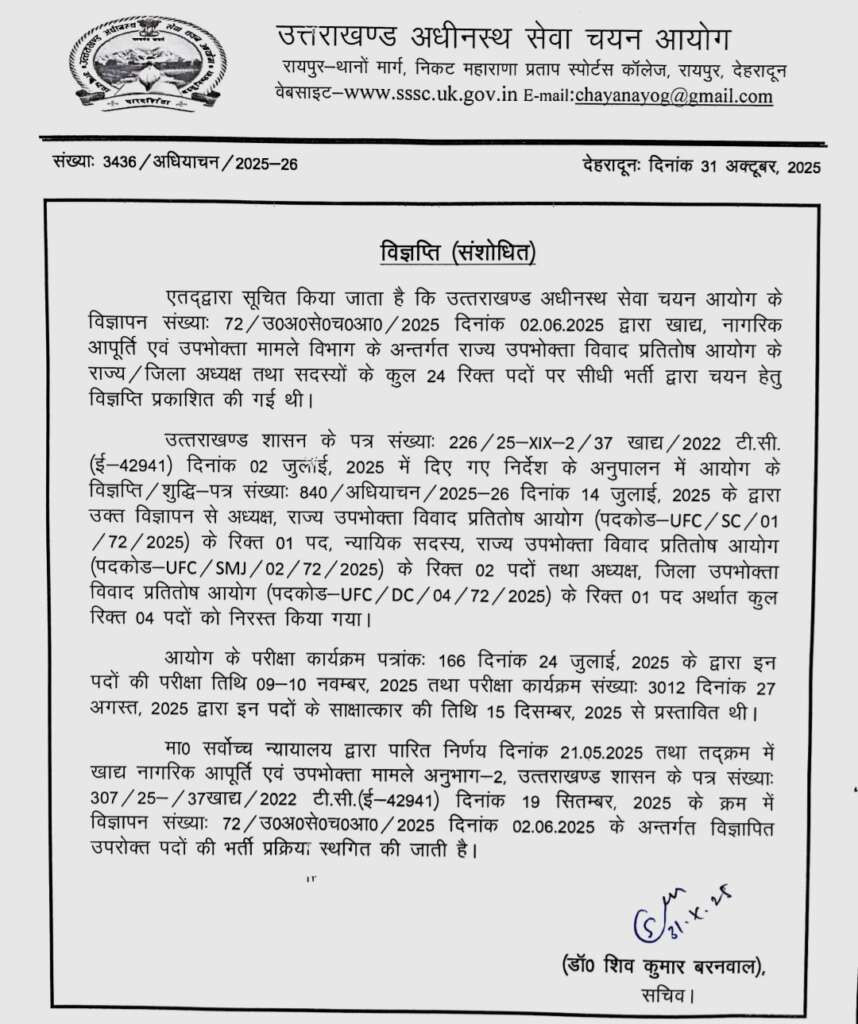 उत्तराखण्ड अधीनस्थ सेवा चयन आयोग
रायपुर–थानों मार्ग, निकट महाराणा प्रताप स्पोर्टस कॉलेज, रायपुर, देहरादून
वेबसाइट–www.sssc.uk.gov.in E-mail:chayanayog@gmail.com
संख्याः 3436/अधियाचन/2025–26 देहरादूनः दिनांक 31 अक्टूबर, 2025
विज्ञप्ति (संशोधित)
एतद्द्वारा सूचित किया जाता है कि उत्तराखण्ड अधीनस्थ सेवा चयन आयोग के
विज्ञापन संख्याः 72/उ0अ0से0च0आ0/2025 दिनांक 02.06.2025 द्वारा खाद्य, नागरिक
आपूर्ति एवं उपभोक्ता मामले विभाग के अन्तर्गत राज्य उपभोक्ता विवाद प्रतितोष आयोग के
राज्य/जिला अध्यक्ष तथा सदस्यों के कुल 24 रिक्त पदों पर सीधी भर्ती द्वारा चयन हेतु
विज्ञप्ति प्रकाशित की गई थी।
उत्तराखण्ड शासन के पत्र संख्याः 226/25–XIX–2/37 खाद्य/2022 टी.सी.
(ई–42941) दिनांक 02 जुलाई, 2025 में दिए गए निर्देश के अनुपालन में आयोग के
विज्ञप्ति/शुद्धि–पत्र संख्याः 840/अधियाचन/2025–26 दिनांक 14 जुलाई, 2025 के द्वारा
उक्त विज्ञापन से अध्यक्ष, राज्य उपभोक्ता विवाद प्रतितोष आयोग (पदकोड–UFC/SC/01
/72/2025) के रिक्त 01 पद, न्यायिक सदस्य, राज्य उपभोक्ता विवाद प्रतितोष आयोग
(पदकोड–UFC/SMJ/02/72/2025) के रिक्त 02 पदों तथा अध्यक्ष, जिला उपभोक्ता
विवाद प्रतितोष आयोग (पदकोड–UFC/DC/04/72/2025) के रिक्त 01 पद अर्थात कुल
रिक्त 04 पदों को निरस्त किया गया।
आयोग के परीक्षा कार्यक्रम पत्रांकः 166 दिनांक 24 जुलाई, 2025 के द्वारा इन
पदों की परीक्षा तिथि 09–10 नवम्बर, 2025 तथा परीक्षा कार्यक्रम संख्याः 3012 दिनांक 27
अगस्त, 2025 द्वारा इन पदों के साक्षात्कार की तिथि 15 दिसम्बर, 2025 से प्रस्तावित थी।
मा0 सर्वोच्च न्यायालय द्वारा पारित निर्णय दिनांक 21.05.2025 तथा तद्क्रम में
खाद्य नागरिक आपूर्ति एवं उपभोक्ता मामले अनुभाग–2, उत्तराखण्ड शासन के पत्र संख्याः
307/25–/37खाद्य/2022 टी.सी.(ई–42941) दिनांक 19 सितम्बर, 2025 के क्रम में
विज्ञापन संख्याः 72/उ0अ0से0च0आ0/2025 दिनांक 02.06.2025 के अन्तर्गत विज्ञापित
उपरोक्त पदों की भर्ती प्रक्रिया स्थगित की जाती है।
31.X.25
(डॉ0 शिव कुमार बरनवाल),
सचिव।